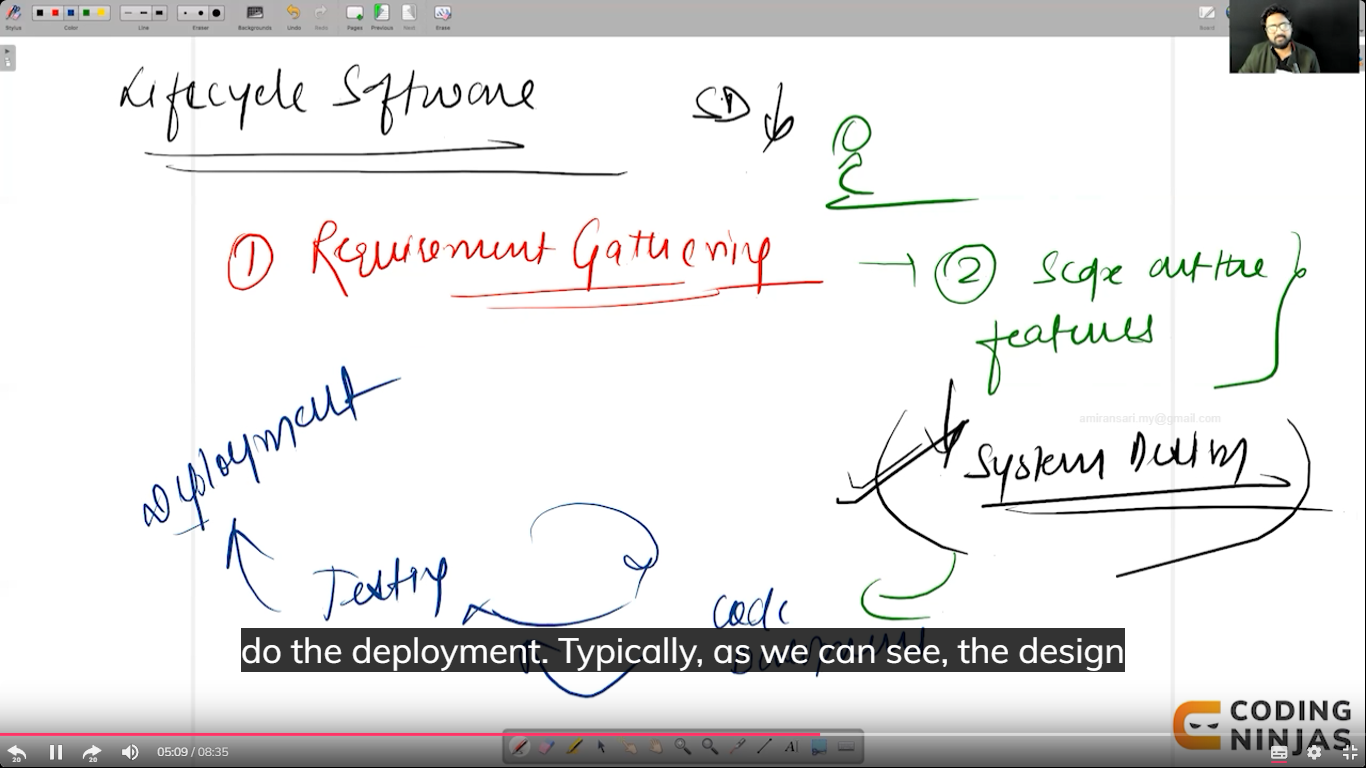 Stylus
Color
Line
Eraser
Backgrounds
Undo
Redo
Pages
Previous
Next
Erase
Board
Lifecycle Software
SD
① Requirement Gathering
② Scope out the
features
amiransari.my@gmail.com
System Design
Deployment
Testing
Code
do the deployment. Typically, as we can see, the design
CODING
NINJAS
20
20
05:09 / 08:35
AI